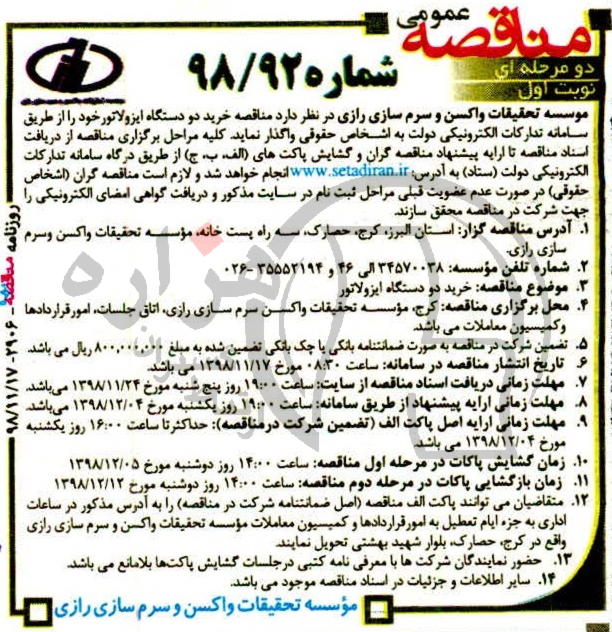 مناقصه عمومی
دو مرحله ای
نوبت اول
شماره ۹۸/۹۲
موسسه تحقیقات واکسن و سرم سازی رازی در نظر دارد مناقصه خرید دو دستگاه ایزولاتور خود را از طریق
سامانه تدارکات الکترونیکی دولت به اشخاص حقوقی واگذار نماید. کلیه مراحل برگزاری مناقصه از دریافت
اسناد مناقصه تا ارایه پیشنهاد مناقصه گران و گشایش پاکت های (الف، ب، ج) از طریق درگاه سامانه تدارکات
الکترونیکی دولت (ستاد) به آدرس: www.setadiran.ir انجام خواهد شد و لازم است مناقصه گران (اشخاص
حقوقی) در صورت عدم عضویت قبلی مراحل ثبت نام در سایت مذکور و دریافت گواهی امضای الکترونیکی را
جهت شرکت در مناقصه محقق سازند.
۱. آدرس مناقصه گزار: استان البرز، کرج، حصارک، سه راه پست خانه، مؤسسه تحقیقات واکسن وسرم
سازی رازی.
۲. شماره تلفن مؤسسه: ۳۴۵۷۰۰۳۸ الی ۴۶ و ۳۵۵۵۲۱۹۴ -۰۲۶
۳. موضوع مناقصه: خرید دو دستگاه ایزولاتور
۴. محل برگزاری مناقصه: کرج، مؤسسه تحقیقات واکسن سرم سازی رازی، اتاق جلسات، امورقراردادها
وکمیسیون معاملات می باشد.
۵. تضمین شرکت در مناقصه به صورت ضمانتنامه بانکی یا چک بانکی تضمین شده به مبلغ ریال می باشد.
۶. تاریخ انتشار مناقصه در سامانه: ساعت ۰۸:۳۰ مورخ ۱۳۹۸/۱۱/۱۷ می باشد.
۷. مهلت زمانی دریافت اسناد مناقصه از سایت: ساعت ۱۹:۰۰ روز پنج شنبه مورخ ۱۳۹۸/۱۱/۲۴ می‌باشد.
۸. مهلت زمانی ارایه پیشنهاد از طریق سامانه: ساعت ۱۹:۰۰ روز یکشنبه مورخ ۱۳۹۸/۱۲/۰۴ می‌باشد.
۹. مهلت زمانی ارایه اصل پاکت الف (تضمین شرکت درمناقصه): حداکثرتا ساعت ۱۶:۰۰ روز یکشنبه
مورخ ۱۳۹۸/۱۲/۰۴ می باشد
۱۰. زمان گشایش پاکات در مرحله اول مناقصه: ساعت ۱۴:۰۰ روز دوشنبه مورخ ۱۳۹۸/۱۲/۰۵
۱۱. زمان بازگشایی پاکات در مرحله دوم مناقصه: ساعت ۱۴:۰۰ روز دوشنبه مورخ ۱۳۹۸/۱۲/۱۲
۱۲. متقاضیان می توانند پاکت الف مناقصه (اصل ضمانتنامه شرکت در مناقصه) را به آدرس مذکور در ساعات
اداری به جزء ایام تعطیل به امورقراردادها و کمیسیون معاملات مؤسسه تحقیقات واکسن و سرم سازی رازی
واقع در کرج، حصارک، بلوار شهید بهشتی تحویل نمایند.
۱۳. حضور نمایندگان شرکت ها با معرفی نامه کتبی درجلسات گشایش پاکت‌ها بلامانع می باشد.
۱۴. سایر اطلاعات و جزئیات در اسناد مناقصه موجود می باشد.
مؤسسه تحقیقات واکسن و سرم سازی رازی
روزنامه مناقصه ۲۹۰۶ - ۹۸/۱۱/۱۷
هزاره